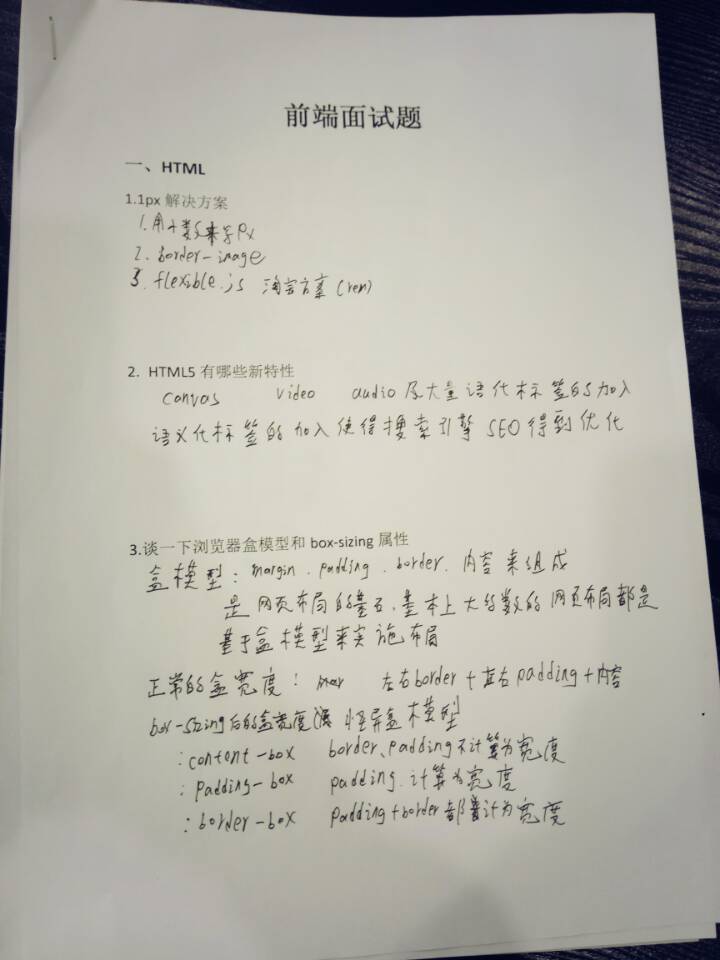 前端面试题
一、HTML
1.1px 解决方案
1. 用小数来写px
2. border-image
3. flexible.js 淘宝方案 (rem)
2. HTML5 有哪些新特性
canvas video audio 及大量语代标签的加入
语义代标签的加入使得搜索引擎 SEO 得到优化
3.谈一下浏览器盒模型和 box-sizing 属性
盒模型：margin、padding、border、内容来组成
是网页布局的基石,基本上大多数的网页布局都是
基于盒模型来实施布局
正常的盒宽度： 左右border+左右padding+内容
box-sizing后的盒宽度 怪异盒模型
:content-box border、padding不计算为宽度
:padding-box padding.计算为宽度
:border-box padding+border都算计为宽度